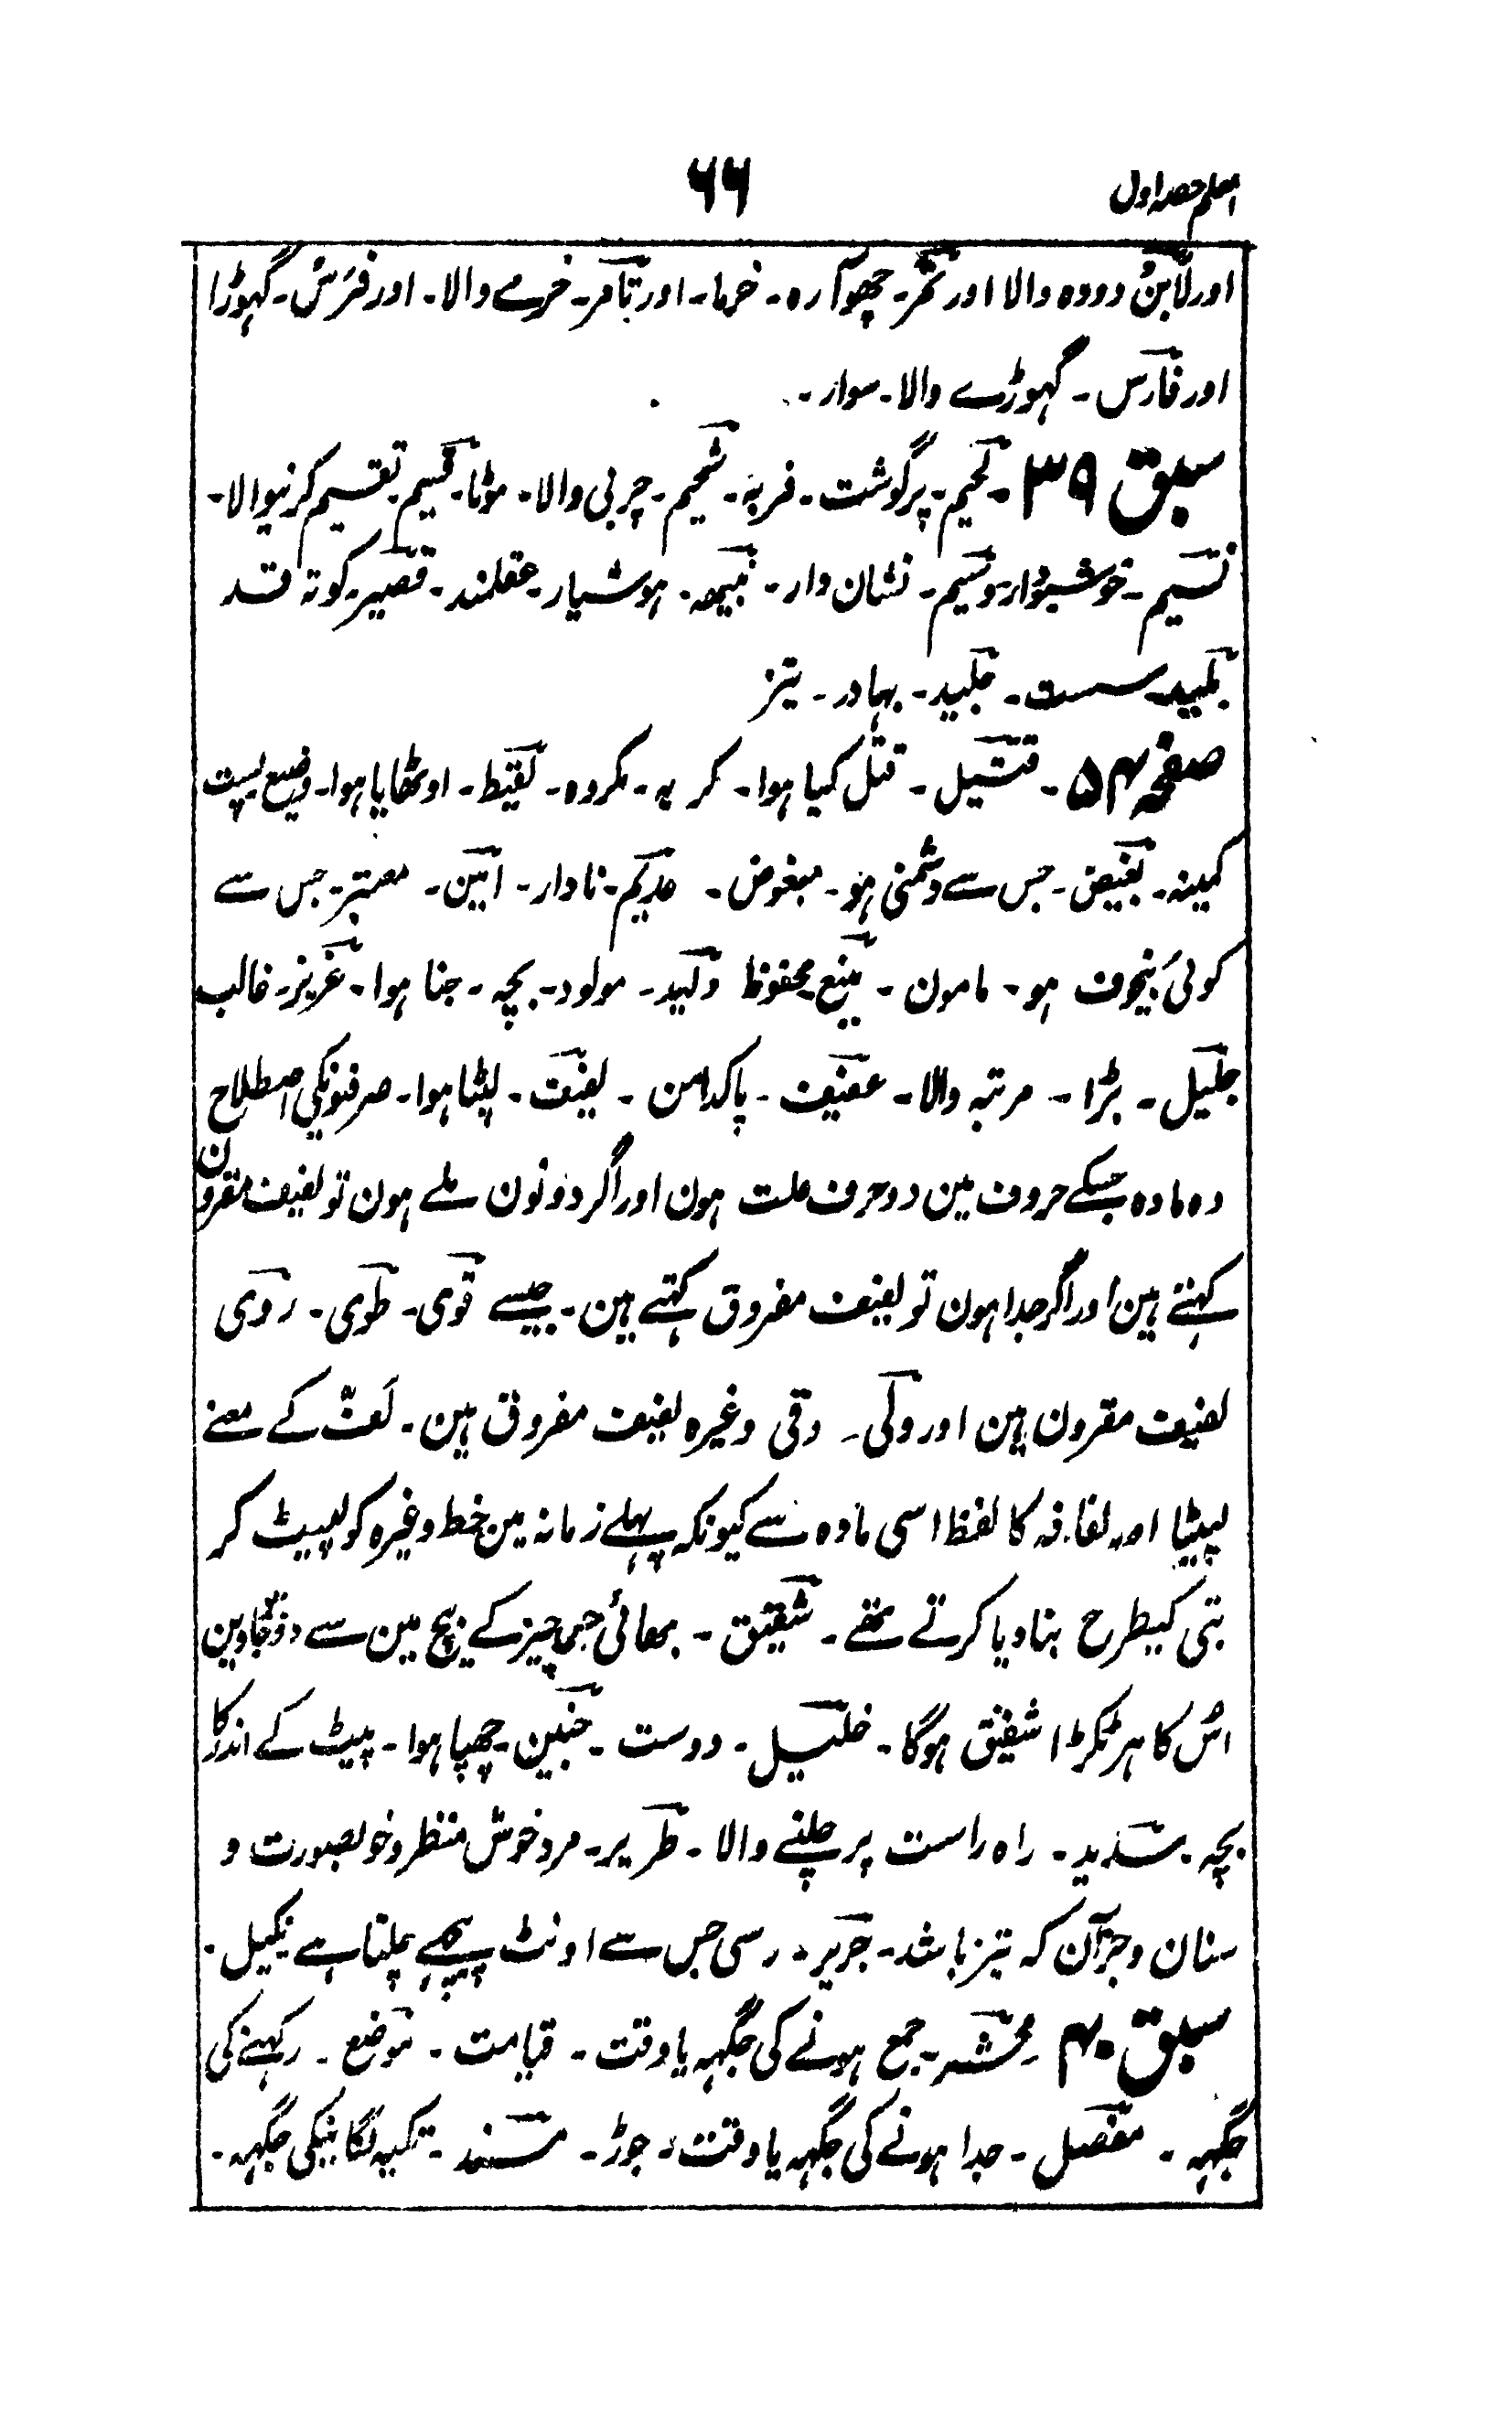 معلم حصہ اول
۶۶
اور لَابِنُ دودہ والا اور تَمَر۔ چھوآرہ۔ خرما۔ اور تَامر۔ خرمے والا۔ اور فَرَسْ۔ گہوڑا
اور فارس۔ گہوڑے والا۔ سوار۔
سبق ۳۹۔ لحیم۔ پرگوشت۔ فربہ۔ شحیم۔ چربی والا۔ موٹا۔ قسیم۔ تقسیم کرنیوالا۔
نسیم۔ خوشبودار۔ وسیم۔ نشان دار۔ نبیہہ۔ ہوشیار۔ عقلمند۔ قصیر۔ کوتہ قد
بلید۔ سست۔ جلید۔ بہادر۔ تیز
صفحہ ۵۴۔ قتیل۔ قتل کیا ہوا۔ کریہ۔ مکروہ۔ لقیط۔ اوٹھایا ہوا۔ وضیع پست
کمینہ۔ بغیض۔ جس سے دشمنی ہو۔ مبغوض۔ عدیم۔ نادار۔ امین۔ معتبر۔ جس سے
کوئی بیخوف ہو۔ مامون۔ منیع محفوظ ولید۔ مولود۔ بچہ۔ جنا ہوا۔ عزیز۔ غالب
جلیل۔ بڑا۔ مرتبہ والا۔ عفیف۔ پاکدامن۔ لفیف۔ لپٹا ہوا۔ صرفیونکی اصطلاح
وہ مادہ جسکے حروف مین دو حرف علت ہون اور اگر دونون ملے ہون تو لفیف مقرون
کہتے ہین اور اگر جدا ہون تو لفیف مفروق کہتے ہین۔ جیسے قوی۔ طوی۔ روی
لفیف مقرون ہین اور ولی۔ وقی وغیرہ لفیف مفروق ہین۔ لَفّ کے معنے
لپیٹنا اور لفافہ کا لفظ اسی مادہ سے کیونکہ پہلے زمانہ مین خط وغیرہ کو لپیٹ کر
بتی کیطرح بنا دیا کرتے تھے۔ شقیق۔ بھائی جس چیز کے بیچ مین سے دو ہو جاوین
اُس کا ہر ٹکڑا شقیق ہوگا۔ خلیل۔ دوست۔ جنین۔ چھپا ہوا۔ پیٹ کے اندر کا
بچہ۔ سدید۔ راہ راست پر چلنے والا۔ طریر۔ مرد خوش منظر و خوبصورت و
سنان وجزآن کہ تیز باشد۔ جریر۔ رسی جس سے اونٹ پیچھے چلتا ہے نکیل۔
سبق ۴۰ محشر۔ جمع ہونے کی جگہہ یا وقت۔ قیامت۔ موضع۔ رکہنے کی
جگہہ۔ مفصل۔ جدا ہونے کی جگہہ یا وقت۔ جوڑ۔ مسند۔ تکیہ لگانیکی جگہہ۔